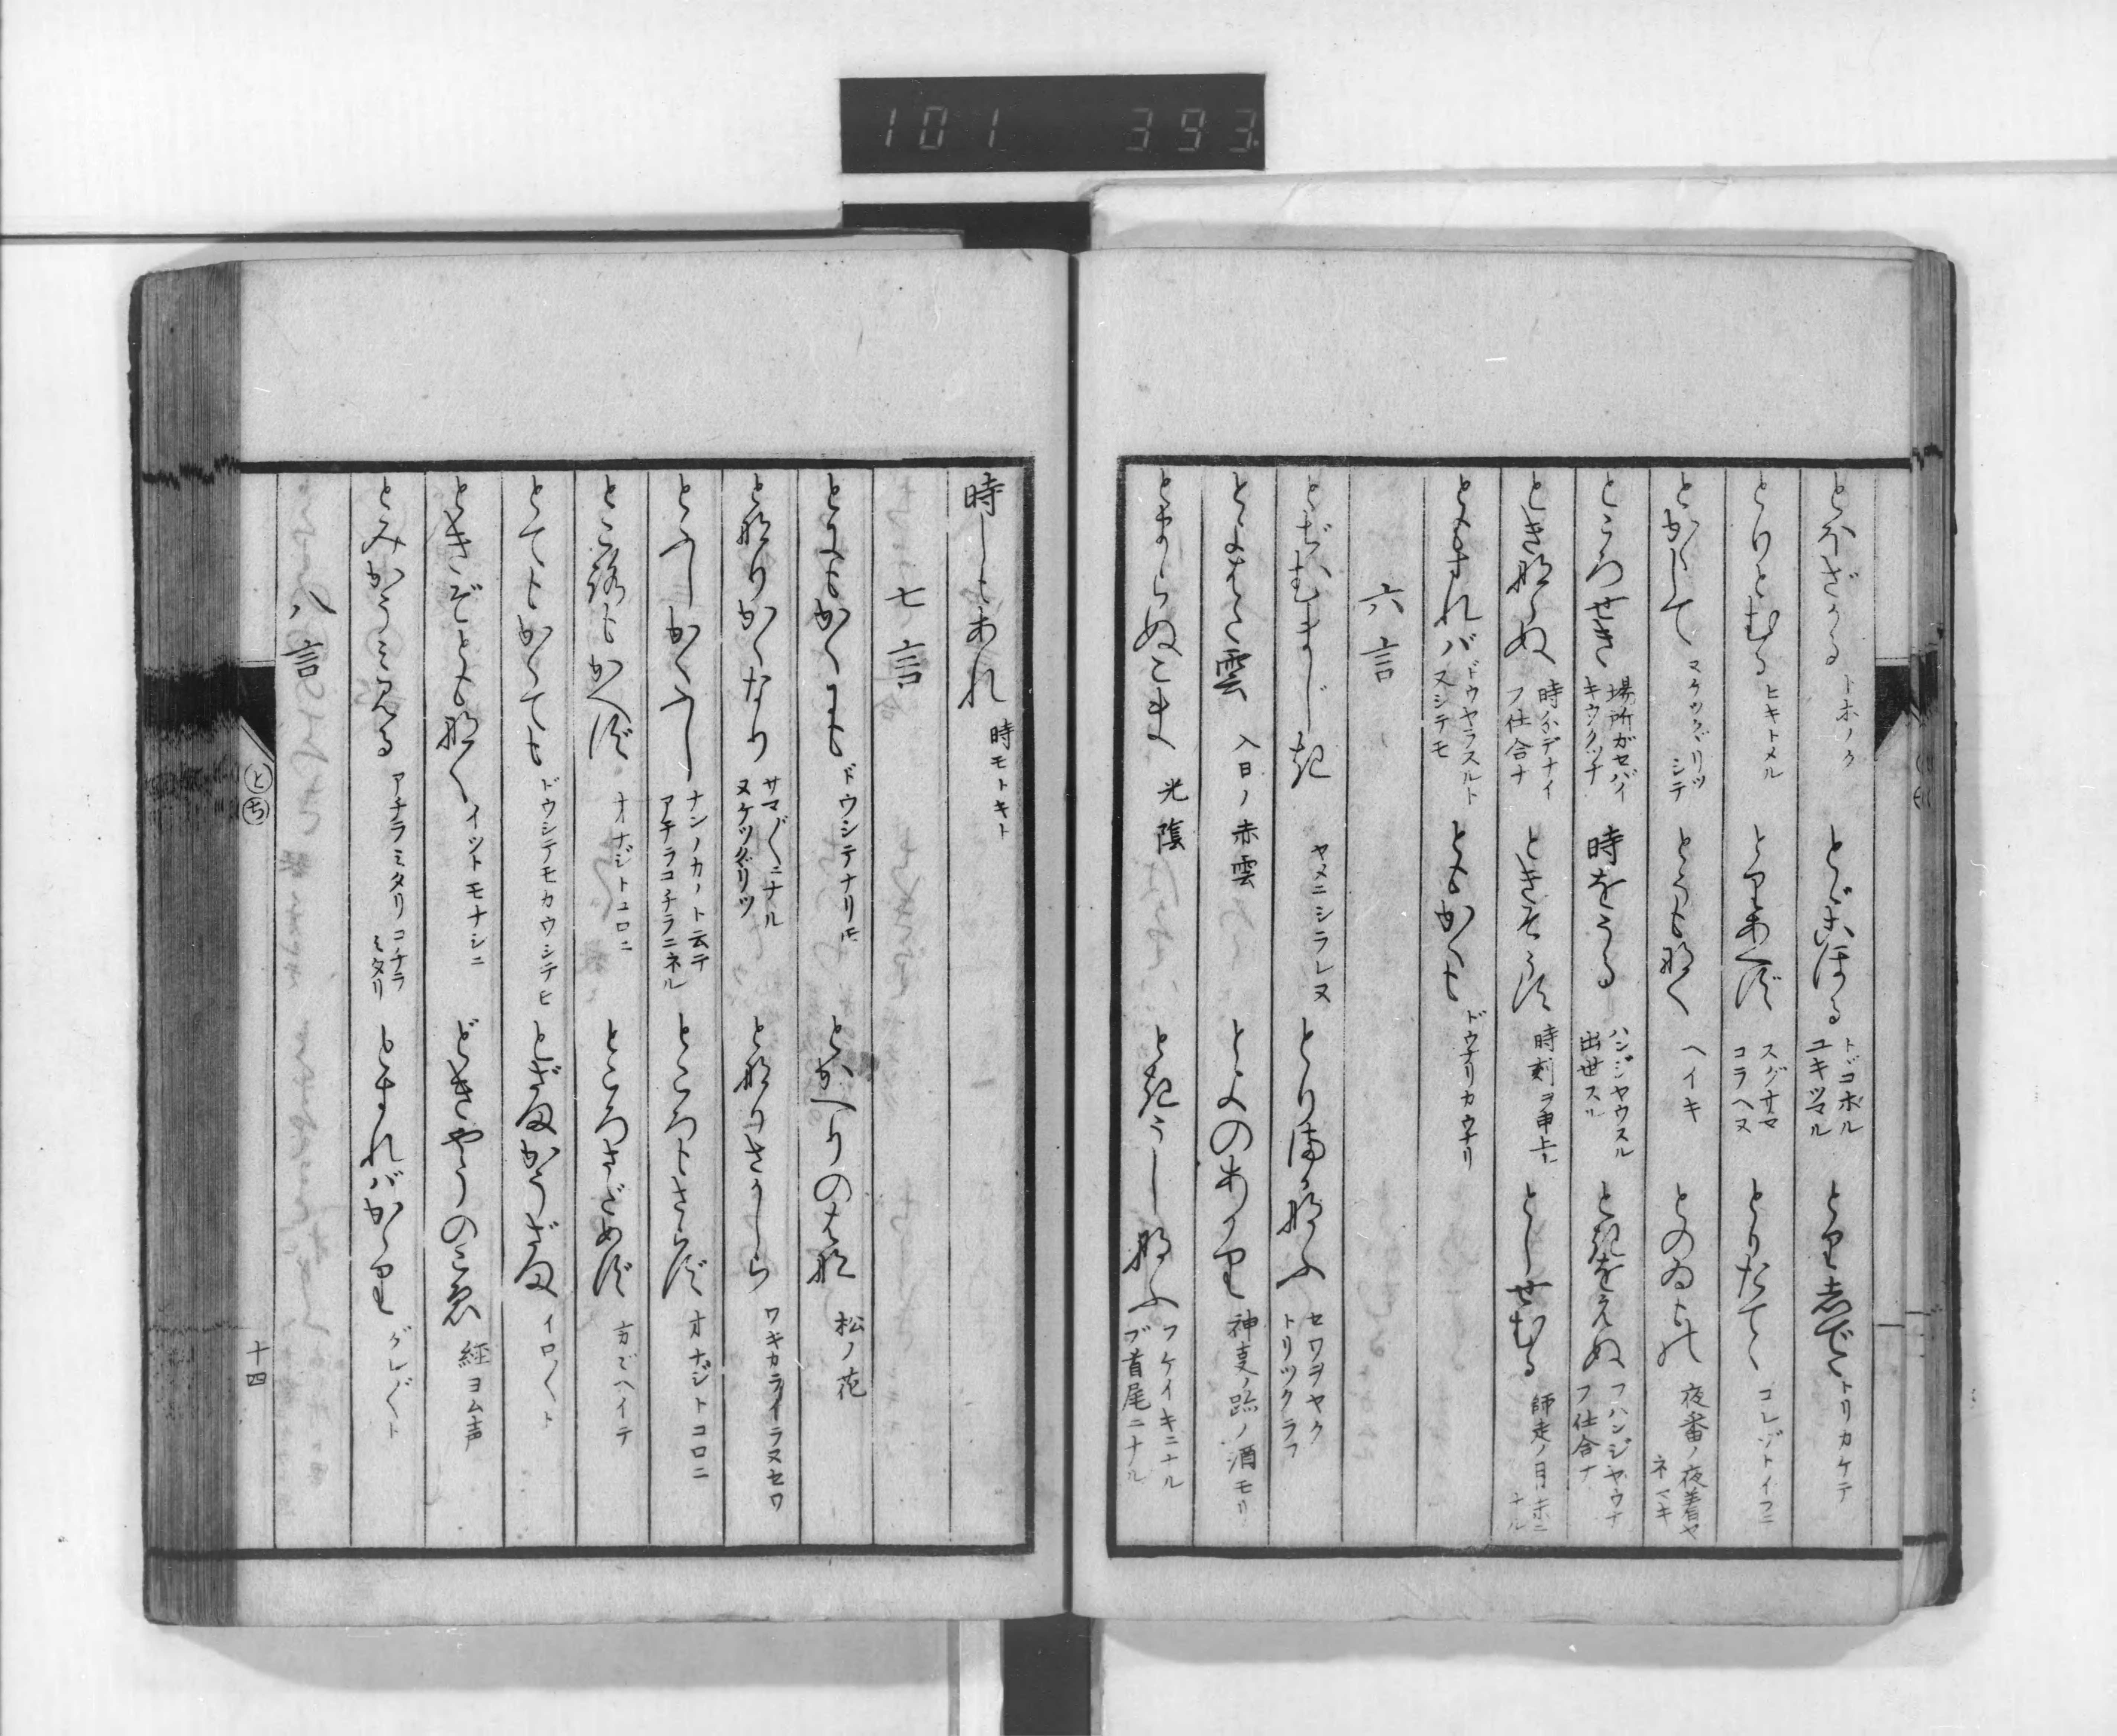 101 393
とほざかる トホノク とゞこほる トヾコホル ユキツマル とり志でゝ トリカケテ
とりとむる ヒキトメル とりあへず スグサマ コラヘヌ とりたてゝ コレゾトイフニ
とかくして ヌケツクヾリツ シテ とうも那く ヘイキ とのゐもの 夜番ノ夜着ヤ ネマキ
ところせき 場所ガセバイ キウクツナ 時をうる ハンジヤウスル 出世スル と紀をえぬ フハンジヤウナ フ仕合ナ
とき那らぬ 時分デナイ フ仕合ナ ときそうす 時刻ヲ申上ル としせむる 師走ノ日
ともすれバ ドウヤラスルト ヌシテモ ともかくも ドウナリカウナリ
六言
ヤメニシラレヌ とりまかなふ セワヲヤク トリツクラフ
とよはた雲 入日ノ赤雲 とよのあかり 神事ノ跡ノ酒モリ
とまらぬこま 光陰 と紀うし那ふ フケイキニナル ブ首尾ニナル
時しもあれ 時モトキト
七言
とにもかくにも ドウシテナリ𪜈 とかへりのは那 松ノ花
と那りかくなり サマ〴〵ニナル ヌケツクヾリツ と那りさかしら ワキカライラヌセワ
とふしかくふし ナンノカノト云テ アチラコチラニネル ところもさらず オナジトコロニ
ところもかへず オナジトコロニ ところさだめず カマハイデ
とてもかくても ドウシテモカウシテモ とざまかうざま イロ〳〵ト
ときぞともなく イツトモナシニ どきやうのこゑ 経ヨム声
とみかうみみる アチラミタリコチラ ミタリ とすればかゝり グレ〴〵ト
八言
と ち
十四